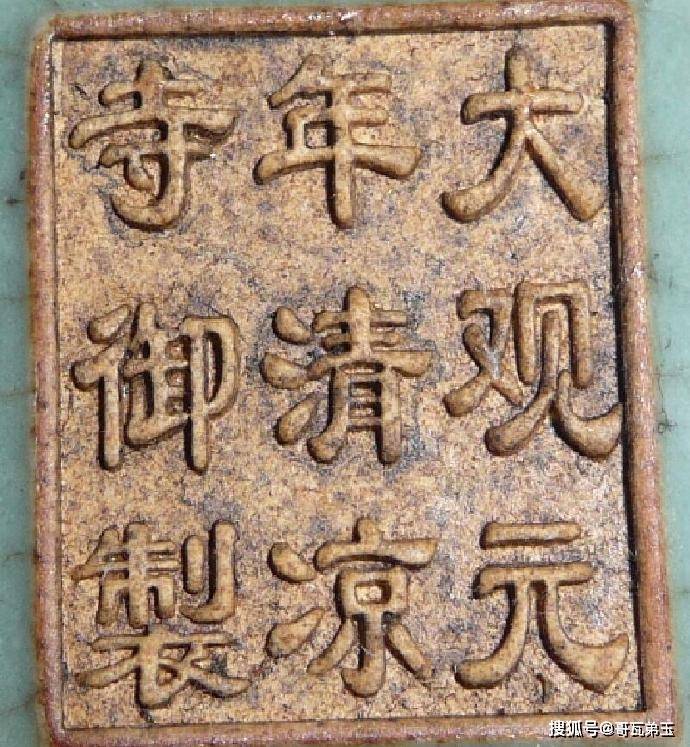 大观元
年清凉
寺御製
搜狐号@哥瓦弟玉